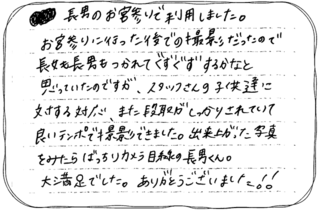 長男のお宮参りで利用しました。
お宮参りに行った後での撮影だったので
長女も長男もつかれてぐずぐずするかなと
思っていたのですが、スタッフさんの子供達に
対する対応、また段取がしっかりされていて
良いテンポで撮影できました。出来上がった写真
をみたらばっちりカメラ目線の長男くん。
大満足でした。ありがとうございました!!